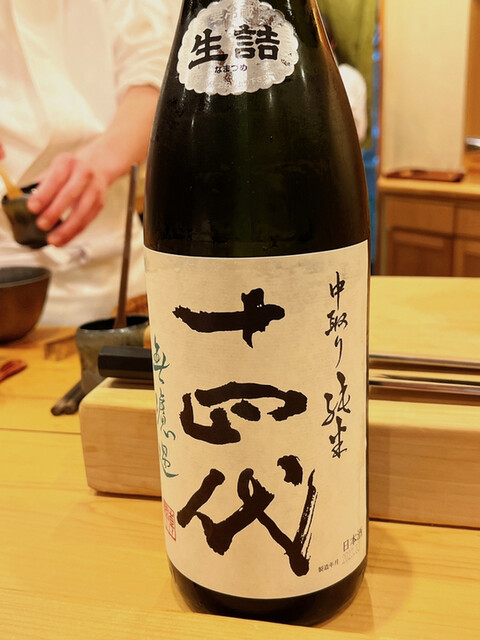 生詰
なまつめ
中取り 純米
十四代
無濾過
日本酒
製造年月